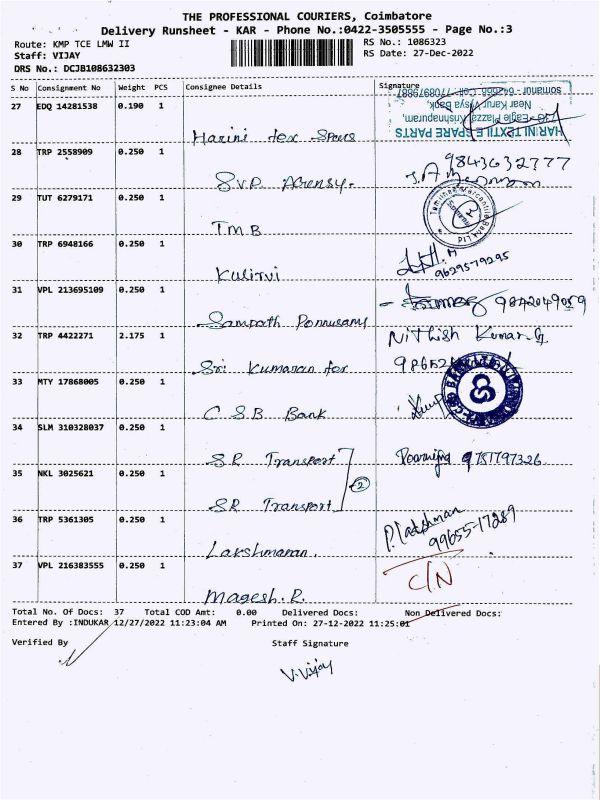 THE PROFESSIONAL COURIERS, Coimbatore
Delivery Runsheet - KAR - Phone No.:0422-3505555 - Page No.:3
Route: KMP TCE LMW II RS No.: 1086323
Staff: VIJAY RS Date: 27-Dec-2022
DRS No.: DCJB108632303
S No Consignment No Weight PCS Consignee Details Signature
27 EDQ 14281538 0.190 1
Harini tex Spares
HARINI TEXTILE SPARE PARTS
Eagle Plazza, Krishnapuram,
Near Karur Vysya Bank,
28 TRP 2558909 0.250 1
S.V.P. Agensy.
9843632777
29 TUT 6279171 0.250 1
TMB
Tamilnad Mercantile Bank Ltd
30 TRP 6948166 0.250 1
Kulirvi
9629579295
31 VPL 213695109 0.250 1
Sampath Ponnusamy
32 TRP 4422271 2.175 1
Sri Kumaran tex
Nithish Kumar.G
33 MTY 17868005 0.250 1
C S B Bank
34 SLM 310328037 0.250 1
S.R Transport
9787797326
35 NKL 3025621 0.250 1
SR Transport
2
36 TRP 5361305 0.250 1
Lakshmanan.
P. Lakshman
99655-17289
37 VPL 216383555 0.250 1
Magesh.R.
C/N
Total No. Of Docs: 37 Total COD Amt: 0.00 Delivered Docs: Non Delivered Docs:
Entered By :INDUKAR 12/27/2022 11:23:04 AM Printed On: 27-12-2022 11:25:01
Verified By Staff Signature
V.Vijay